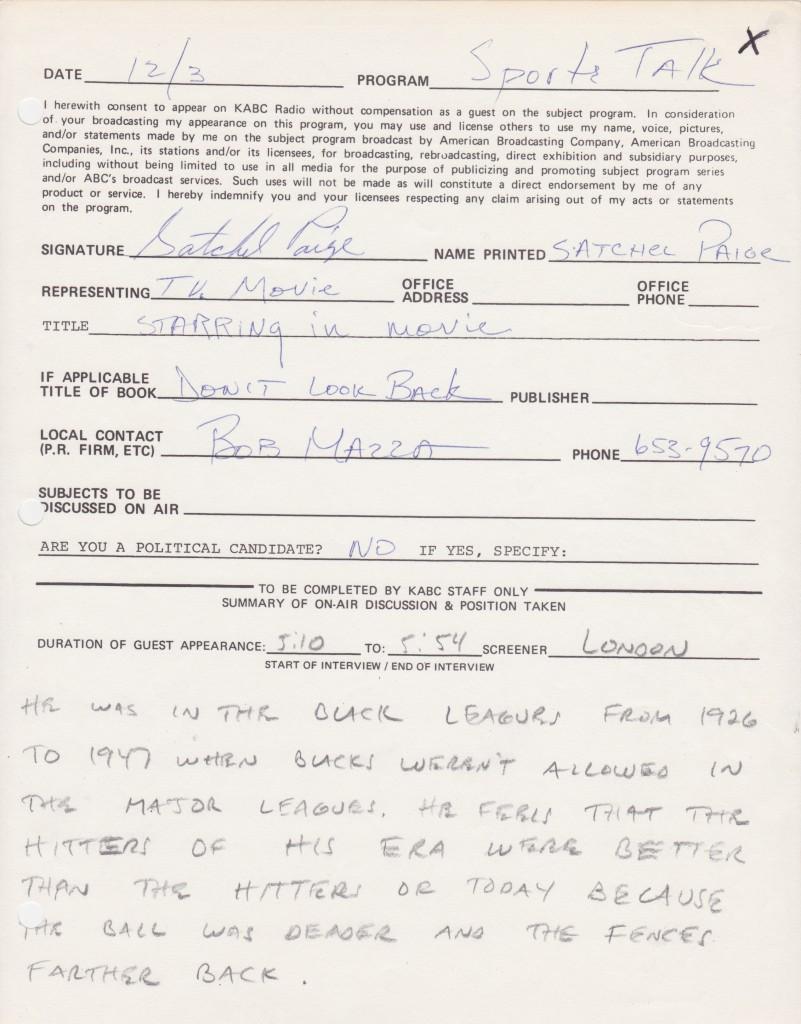 X
DATE 12/3 PROGRAM Sports Talk
I herewith consent to appear on KABC Radio without compensation as a guest on the subject program. In consideration
of your broadcasting my appearance on this program, you may use and license others to use my name, voice, pictures,
and/or statements made by me on the subject program broadcast by American Broadcasting Company, American Broadcasting
Companies, Inc., its stations and/or its licensees, for broadcasting, rebroadcasting, direct exhibition and subsidiary purposes,
including without being limited to use in all media for the purpose of publicizing and promoting subject program series
and/or ABC's broadcast services. Such uses will not be made as will constitute a direct endorsement by me of any
product or service. I hereby indemnify you and your licensees respecting any claim arising out of my acts or statements
on the program.
SIGNATURE Satchel Paige NAME PRINTED SATCHEL PAIGE
REPRESENTING T.V. Movie OFFICE ADDRESS OFFICE PHONE
TITLE STARRING in movie
IF APPLICABLE
TITLE OF BOOK DON'T LOOK BACK PUBLISHER
LOCAL CONTACT
(P.R. FIRM, ETC) BOB MAZZA PHONE 653-9570
SUBJECTS TO BE
DISCUSSED ON AIR
ARE YOU A POLITICAL CANDIDATE? NO IF YES, SPECIFY:
TO BE COMPLETED BY KABC STAFF ONLY
SUMMARY OF ON-AIR DISCUSSION & POSITION TAKEN
DURATION OF GUEST APPEARANCE: 5:10 TO: 5:54 SCREENER LONDON
START OF INTERVIEW / END OF INTERVIEW
HE WAS IN THE BLACK LEAGUES FROM 1926
TO 1947 WHEN BLACKS WEREN'T ALLOWED IN
THE MAJOR LEAGUES. HE FEELS THAT THE
HITTERS OF HIS ERA WERE BETTER
THAN THE HITTERS OF TODAY BECAUSE
THE BALL WAS DEADER AND THE FENCES
FARTHER BACK.